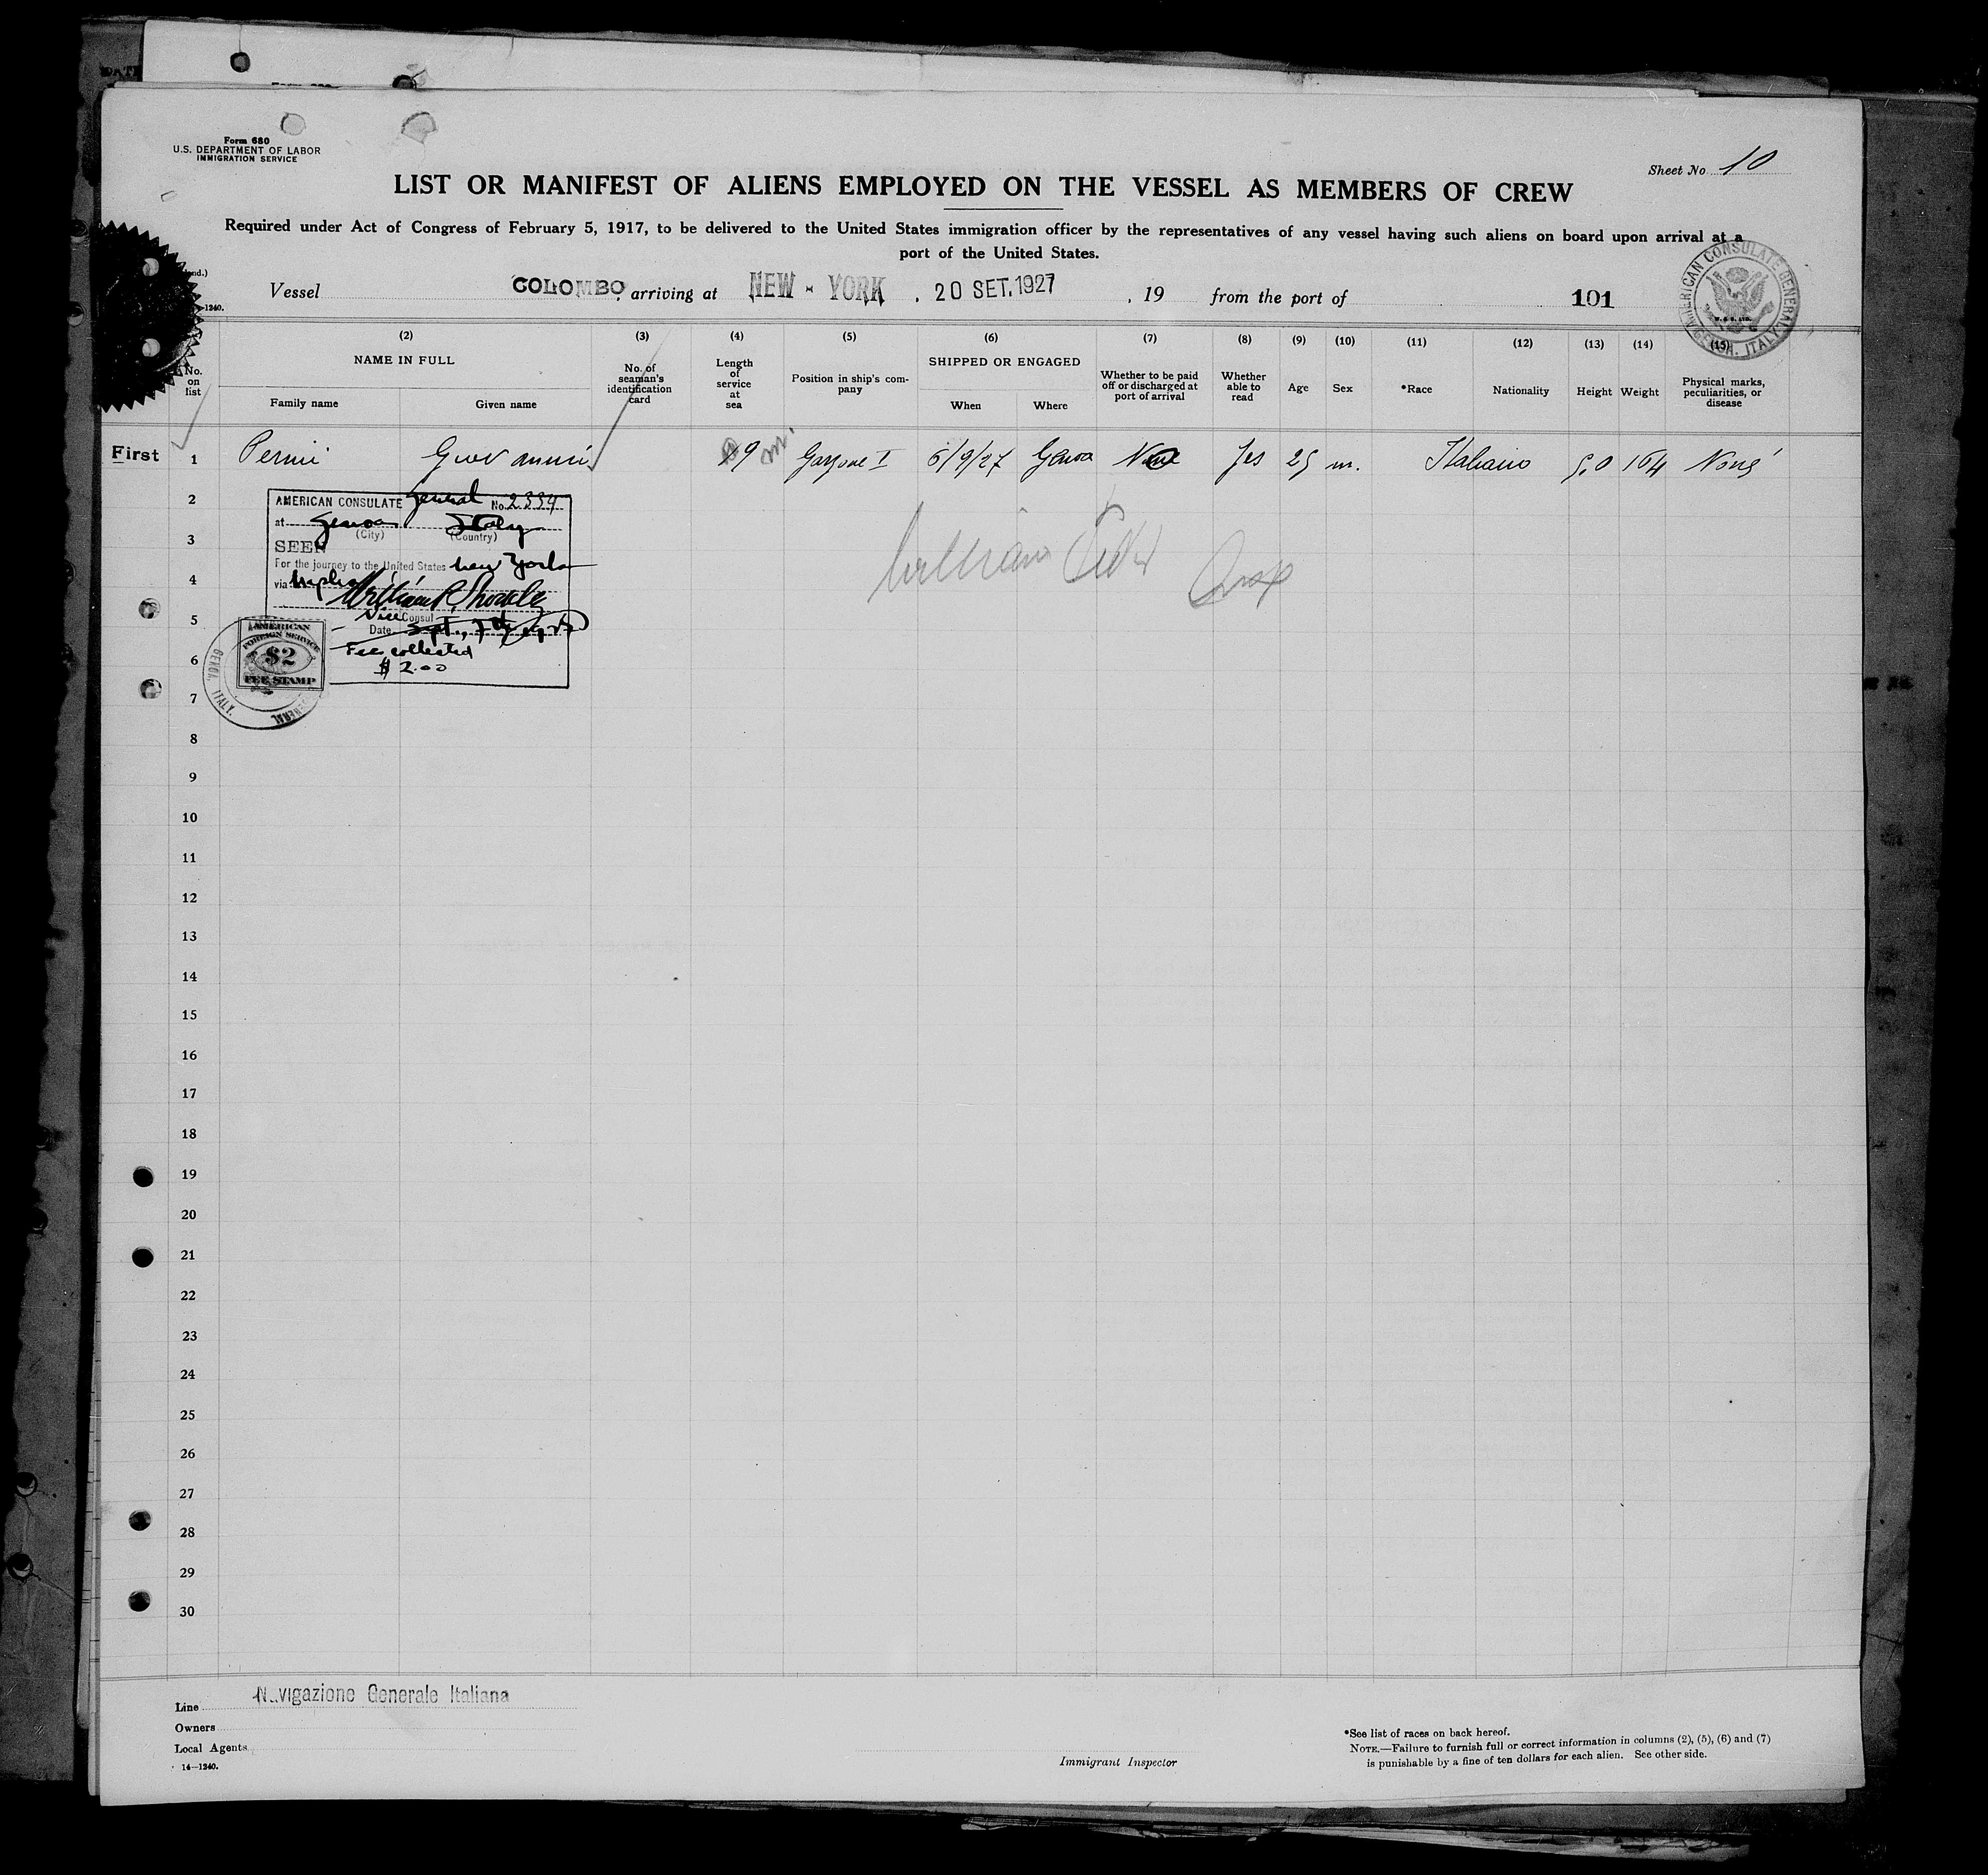 Form 680
U.S. DEPARTMENT OF LABOR
IMMIGRATION SERVICE
Sheet No. 10
LIST OR MANIFEST OF ALIENS EMPLOYED ON THE VESSEL AS MEMBERS OF CREW
Required under Act of Congress of February 5, 1917, to be delivered to the United States immigration officer by the representatives of any vessel having such aliens on board upon arrival at a
port of the United States.
Vessel COLOMBO, arriving at NEW-YORK, 20 SET.1927, 19 from the port of 101
AMERICAN CONSULATE GENERAL GENOA, ITALY.
(2) (3) (4) (5) (6) (7) (8) (9) (10) (11) (12) (13) (14) (15)
No. on list
NAME IN FULL
Family name
Given name
No. of seaman's identification card
Length of service at sea
Position in ship's company
SHIPPED OR ENGAGED
When
Where
Whether to be paid off or discharged at port of arrival
Whether able to read
Age
Sex
*Race
Nationality
Height
Weight
Physical marks, peculiarities, or disease
First 1 Giovanni 9 Garzone I 6/9/27 Genoa Yes 25 m. Italiano 5.0 164 None
2
3
4
5
6
7
8
9
10
11
12
13
14
15
16
17
18
19
20
21
22
23
24
25
26
27
28
29
30
AMERICAN CONSULATE General No. 2334
at Genoa Italy
(City) (Country)
SEEN
For the journey to the United States New York
via Naples
William
Vice Consul
Date Sept. 7th, 1927
Fee collected
$ 2.00
AMERICAN
FOREIGN SERVICE
$2
FEE STAMP
GENOA, ITALY.
William
Line Navigazione Generale Italiana
Owners
Local Agents
14—1240.
Immigrant Inspector
*See list of races on back hereof.
NOTE.—Failure to furnish full or correct information in columns (2), (5), (6) and (7)
is punishable by a fine of ten dollars for each alien. See other side.